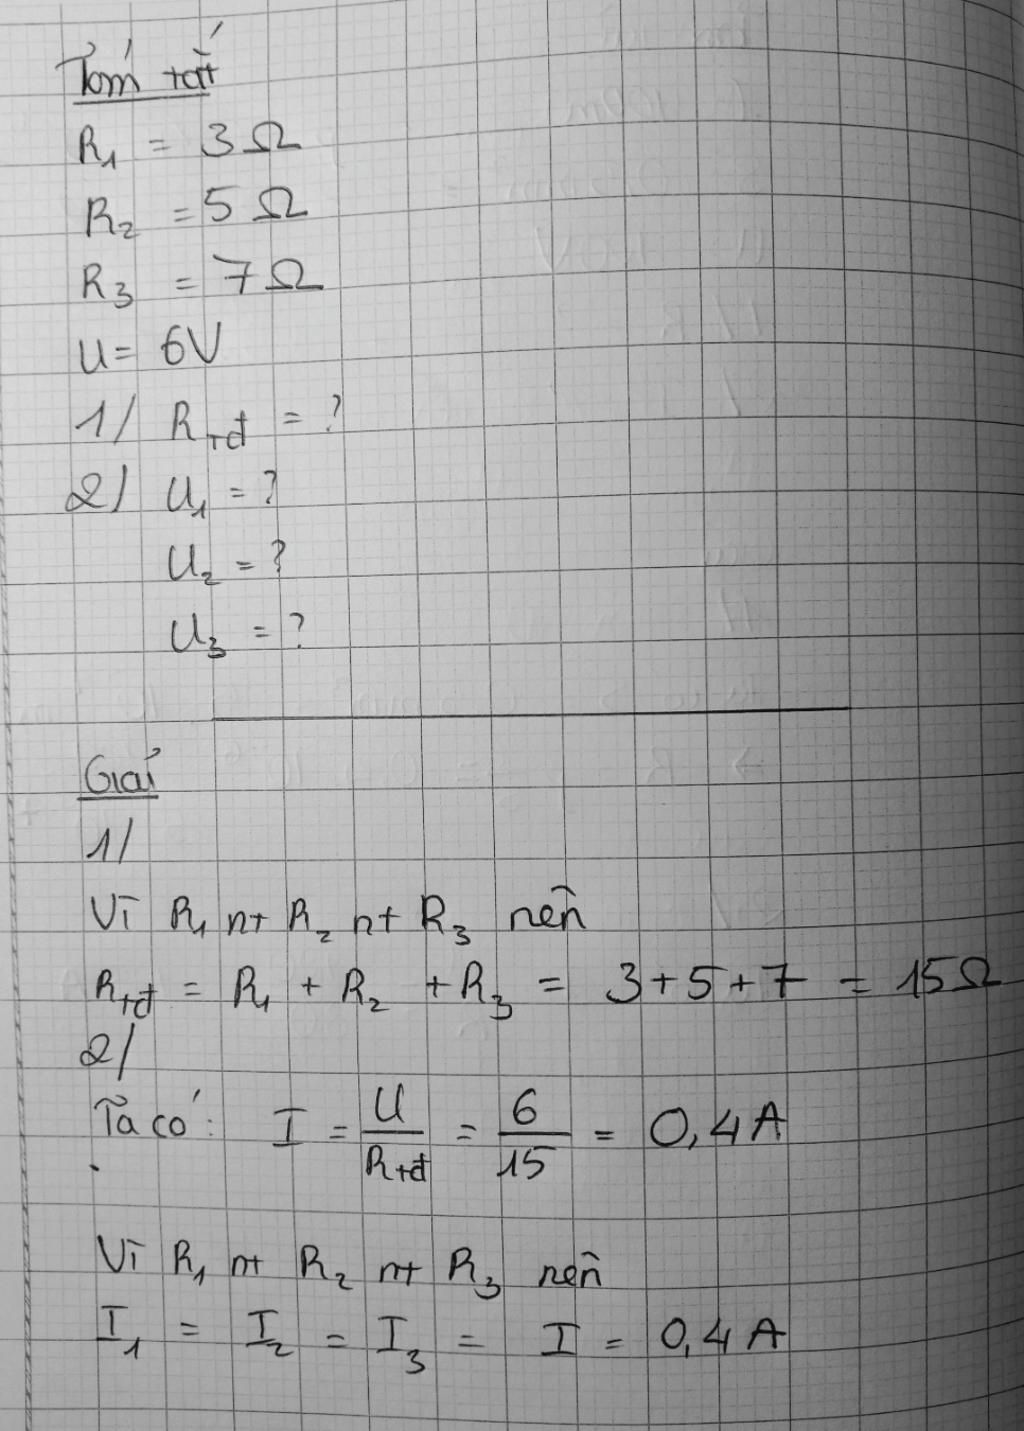 Tóm tắt
R₁ = 3Ω
R₂ = 5Ω
R₃ = 7Ω
U = 6V
1/ Rtđ = ?
2/ U₁ = ?
U₂ = ?
U₃ = ?
Giải
1/
Vì R₁ nt R₂ nt R₃ nên
Rtđ = R₁ + R₂ + R₃ = 3+5+7 = 15Ω
2/
Ta có: I = U/Rtđ = 6/15 = 0,4A
Vì R₁ nt R₂ nt R₃ nên
I₁ = I₂ = I₃ = I = 0,4A